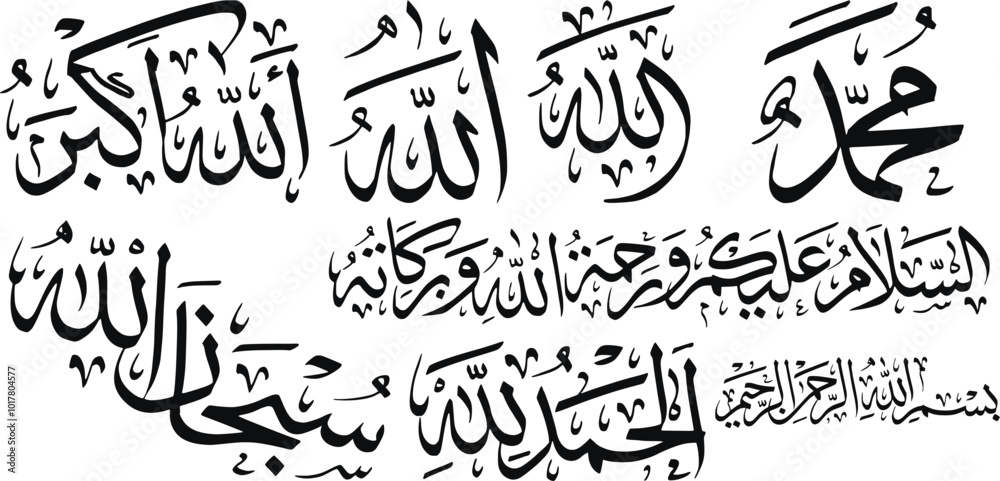 محمد
الله
الله
ألله أكبر
السلام عليكم ورحمة الله وبركاته
سبحان الله
الحمد لله
بسم الله الرحمن الرحيم
Adobe Stock | #1017804577